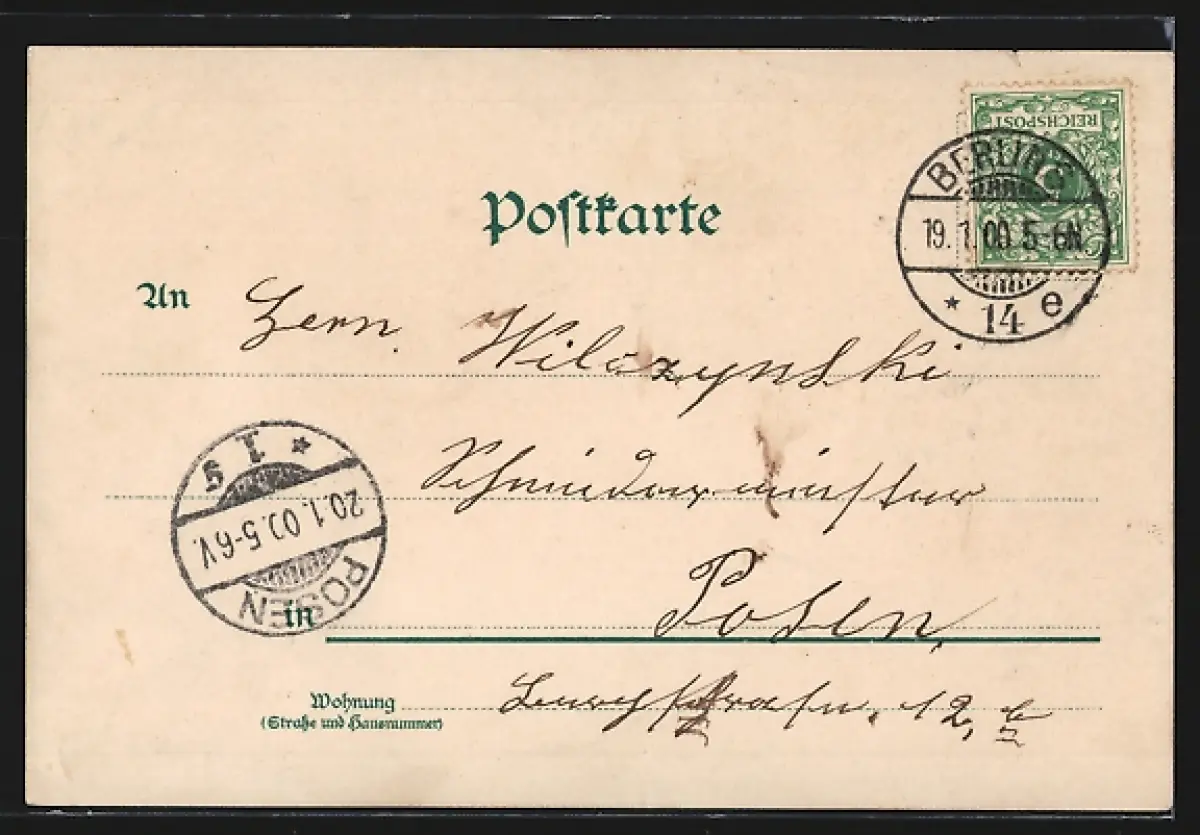 REICHSPOST
BERLIN S
19. 1. 00 5-6N
* 14 e
Postkarte
An Herrn Wilczynski
Schneidermeister
* 1 s
20.1.00.5-6V.
POSEN
in Posen,
Wohnung 12, b
(Straße und Hausnummer)